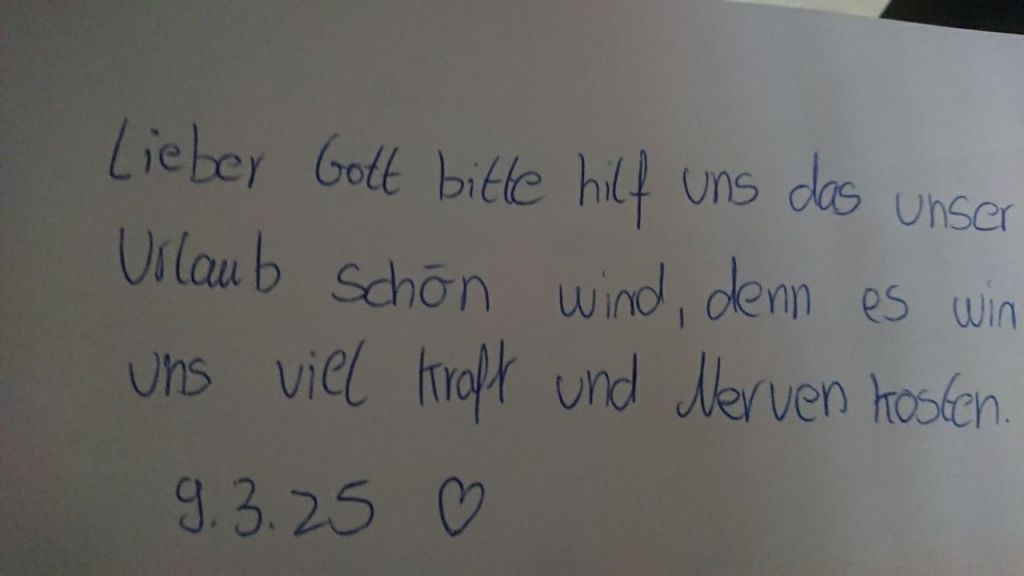 Lieber Gott bitte hilf uns das unser
Urlaub schön wird, denn es wir
uns viel Kraft und Nerven kosten.
9.3.25 ♡